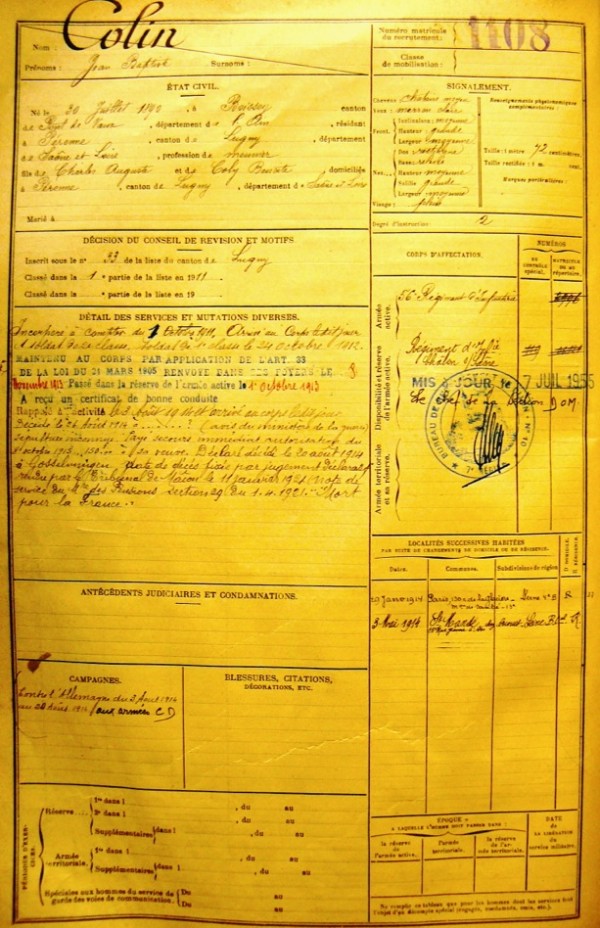 Nom : Colin
Prénoms : Jean Baptist Surnoms :
Numéro matricule du recrutement : 1108
Classe de mobilisation :
ÉTAT CIVIL.
Né le 20 Juillet 1890, à canton
de Pont de Vaux, département de l'Ain, résidant
à Péronne, canton de Lugny, département
de Saône et Loire, profession de meunier
fils de Charles Auguste et de domiciliés
à Péronne, canton de Lugny, département de Saône et Loire
Marié à
SIGNALEMENT.
Cheveux châtain
Yeux marron clair
Front. Inclinaison moyenne
Hauteur grande
Largeur moyenne
Nez. Dos rectiligne
Base
Hauteur moyenne
Saillie grande
Largeur moyenne
Visage : plein
Renseignements physionomiques complémentaires :
Taille : 1 mètre 72 centimètres.
Taille rectifiée : 1 m. cent.
Marques particulières :
Degré d'instruction : 2
DÉCISION DU CONSEIL DE REVISION ET MOTIFS.
Inscrit sous le n° 23 de la liste du canton de Lugny
Classé dans la 1e partie de la liste en 1911
Classé dans la partie de la liste en 19
DÉTAIL DES SERVICES ET MUTATIONS DIVERSES.
Incorporé à compter du 1 Octobre 1911, Arrivé au Corps ledit jour
soldat de 2e classe, Soldat de 1e classe le 24 octobre 1912.
MAINTENU AU CORPS PAR APPLICATION DE L'ART. 33
DE LA LOI DU 21 MARS 1905 RENVOYÉ DANS SES FOYERS LE 8
Novembre 1913 Passé dans la réserve de l'armée active le 1er Octobre 1913
A reçu un certificat de bonne conduite.
Rappelé à l'activité le 3 Août 1914 et arrivé au corps ledit jour
Décédé le 26 Août 1914 à ......? (avis du ministère de la guerre)
Sépulture inconnue. Payé secours immédiat autorisation du
octobre 1915, 150 m à sa veuve. Déclaré décédé le 20 août 1914
à Gosselmingen. date de décès fixée par jugement Déclaratif
rendu par le Tribunal de Macon le 11 janvier 1921. Note de
service du Mtre des Pensions section 29 du 1.4.1921. Mort
pour la France.
CORPS D'AFFECTATION.
NUMÉROS
AU CONTRÔLE SPÉCIAL.
MATRICULE OU AU RÉPERTOIRE.
Armée active.
56e Régiment d'Infanterie
Disponibilité et réserve de l'armée active.
Régiment d'Infie
Chalon s/ Saône
MIS A JOUR le 7 JUIL 1955
Armée territoriale et sa réserve.
BUREAU DE
LOCALITÉS SUCCESSIVES HABITÉES
PAR SUITE DE CHANGEMENTS DE DOMICILE OU DE RÉSIDENCE.
Dates. Communes. Subdivisions de région D. DOMICILE. R. RÉSIDENCE.
20 Janv 1914 Paris, Seine R
3 Mai 1914 St Mandé Seine R
ANTÉCÉDENTS JUDICIAIRES ET CONDAMNATIONS.
CAMPAGNES.
Contre l'Allemagne du 3 Août 1914
au 20 Août 1914 (aux armées C D)
BLESSURES, CITATIONS,
DÉCORATIONS, ETC.
PÉRIODES D'EXERCICES.
Réserve... 1re dans l , du au
2e dans l , du au
Supplémentaires dans l , du au
, du au
Armée territoriale. 1re dans l , du au
Supplémentaires dans l , du au
, du au
Spéciales aux hommes du service de garde des voies de communication. Du au
Du au
ÉPOQUE
A LAQUELLE L'HOMME DOIT PASSER DANS :
la réserve de l'armée active.
l'armée territoriale.
la réserve de l'armée territoriale.
DATE DE LA LIBÉRATION DU service militaire.
Ne remplir ce tableau que pour les hommes dont les services font l'objet d'un décompte spécial (engagés, omis, etc.).